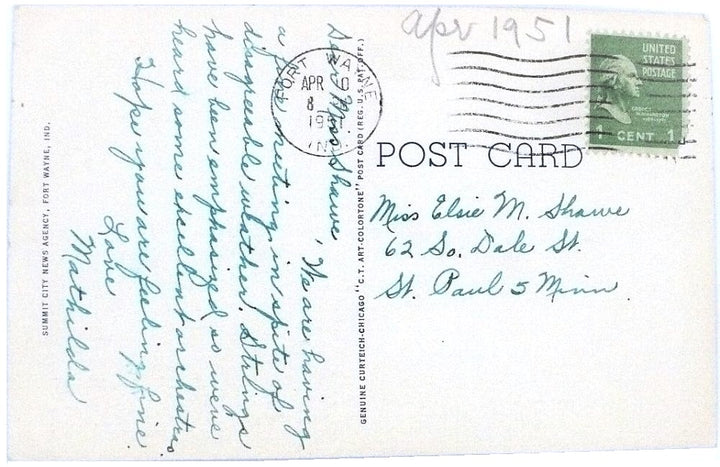 apr 1951
FORT WAYNE
APR 10
8
1951
IND.
UNITED
STATES
POSTAGE
1 CENT 1
POST CARD
Miss Elsie M. Shawe
62 So. Dale St.
St. Paul 5 Minn.
Dear Miss Shawe, We are having
a fine meeting in spite of
disagreeable weather. Strings
have been emphasized so we've
heard some excellent orchestras.
Hope you are feeling fine.
Love
Mathilda
GENUINE CURTEICH-CHICAGO "C.T. ART-COLORTONE" POST CARD (REG. U.S. PAT. OFF.)
SUMMIT CITY NEWS AGENCY, FORT WAYNE, IND.